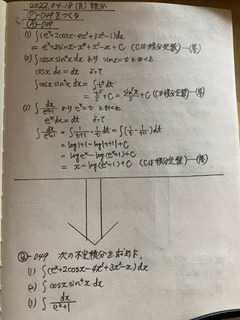 2022.04.18 (月) 積分
Ⓟ-049をつくる
Ⓐ-049
(1) ∫(eˣ+2cosx-4x³+3x²-1)dx
= eˣ+2sinx-x⁴+x³-x+C (Cは積分定数)—(答)
(2) ∫cosx sin⁴x dx より sinx=tとおくと
cosx dx = dt よって
∫cosx sin⁴x dx = ∫t⁴dt
= t⁵/5+C = sin⁵x/5+C (Cは積分定数)—(答)
(3) ∫dx/(eˣ+1) より eˣ=t とおくと
eˣdx = dt よって
∫dx/(eˣ+1) = ∫1/(t+1)・1/t dt = ∫(1/t - 1/(t+1))dt
= log|t|-log|t+1|+C
= log eˣ-log(eˣ+1)+C
= x-log(eˣ+1)+C (Cは積分定数)—(答)
Ⓠ-049 次の不定積分を求めよ.
(1) ∫(eˣ+2cosx-4x³+3x²-x)dx
(2) ∫cosx sin⁴x dx
(3) ∫dx/(eˣ+1)